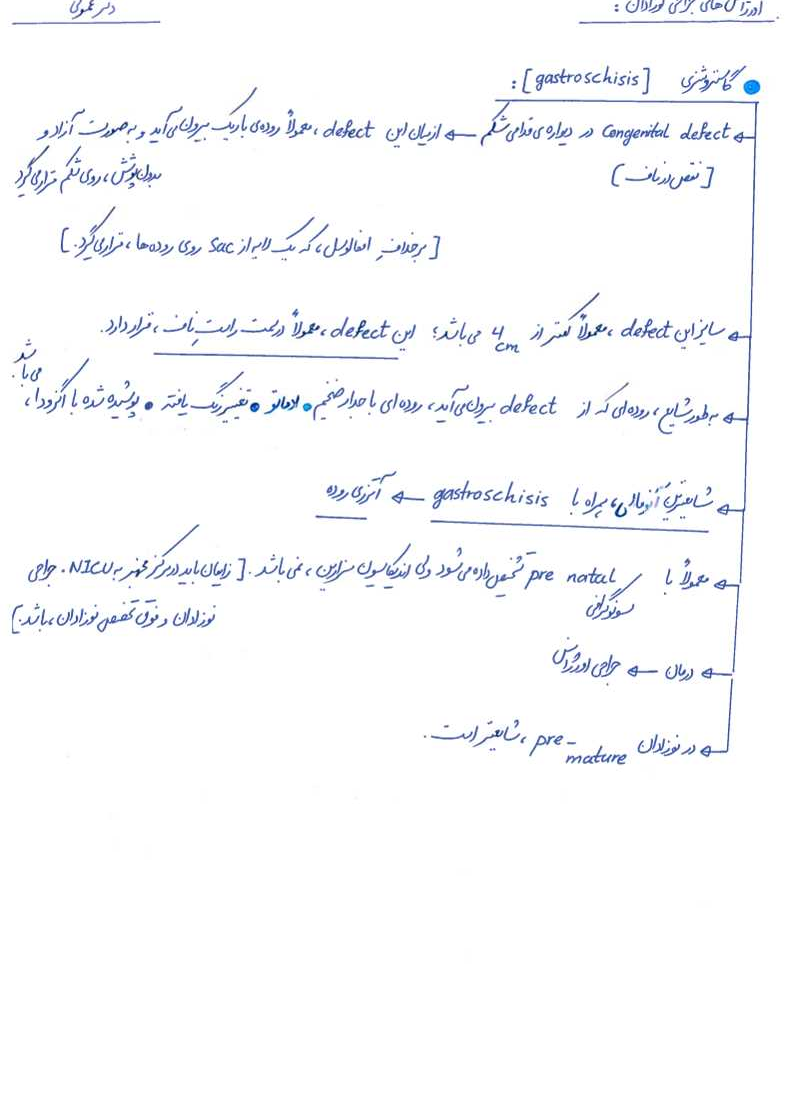 اورژانس‌های جراحی نوزادان :
دکتر عموئی
گاستروشزی [gastroschisis] :
Congenital defect در دیواره‌ی قدامی شکم ← از میان این defect ، معمولاً روده‌ی باریک بیرون می‌آید و به صورت آزاد و
[نقص در ناف] بدون پوشش، روی شکم قرار می‌گیرد
[برخلافِ امفالوسل، که یک لایه از Sac روی روده‌ها، قرار می‌گیرد.]
سایز این defect ، معمولاً کمتر از 4 cm می‌باشد؛ این defect ، معمولاً در سمت راستِ ناف، قرار دارد.
به طور شایع، روده‌ای که از defect بیرون می‌آید، روده‌ای با جدار ضخیم • ادماتو • تغییر رنگ یافته • پوشیده شده با اگزودا، می‌باشد
شایعترین آنومالی همراه با gastroschisis ← آترزی روده
معمولاً با سونوگرافی pre natal تشخیص داده می‌شود ولی اندیکاسیون سزارین، نمی‌باشد. [زایمان باید در مرکز مجهز به NICU، جراحی
نوزادان و فوق تخصص نوزادان، باشد.]
درمان ← جراحی اورژانس
در نوزادان pre-mature ، شایعتر است.